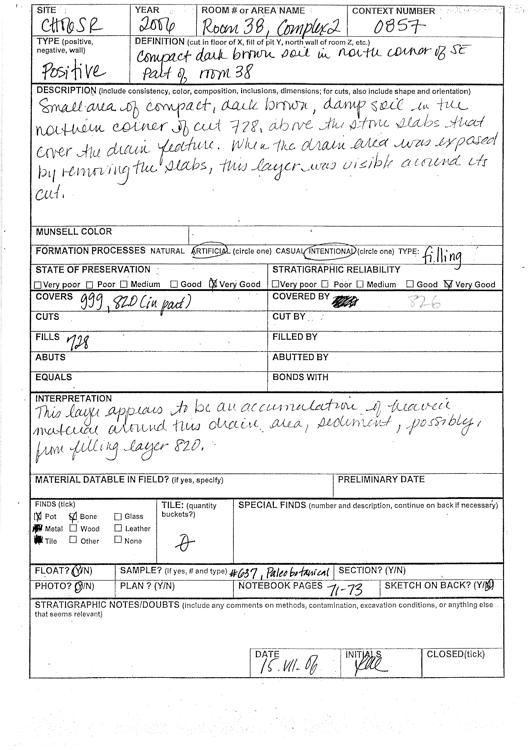 SITE YEAR ROOM # or AREA NAME CONTEXT NUMBER
CH06SR 2006 Room 38, Complex 2 0857
TYPE (positive, negative, wall) DEFINITION (cut in floor of X, fill of pit Y, north wall of room Z, etc.)
Positive Compact dark brown soil in north corner of SE
part of room 38
DESCRIPTION (Include consistency, color, composition, inclusions, dimensions; for cuts, also include shape and orientation)
Small area of compact, dark brown, damp soil in the
northern corner of cut 728, above the stone slabs that
cover the drain feature. When the drain area was exposed
by removing the slabs, this layer was visible around its
cut.
MUNSELL COLOR
FORMATION PROCESSES NATURAL ARTIFICIAL (circle one) CASUAL INTENTIONAL (circle one) TYPE: filling
STATE OF PRESERVATION STRATIGRAPHIC RELIABILITY
Very poor Poor Medium Good Very Good Very poor Poor Medium Good Very Good
COVERS 999, 820 (in part) COVERED BY 826
CUTS CUT BY
FILLS 728 FILLED BY
ABUTS ABUTTED BY
EQUALS BONDS WITH
INTERPRETATION
This layer appears to be an accumulation of heavier
material around this drain area, sediment, possibly,
from filling layer 820.
MATERIAL DATABLE IN FIELD? (if yes, specify) PRELIMINARY DATE
FINDS (tick) TILE: (quantity buckets?) SPECIAL FINDS (number and description, continue on back if necessary)
Pot Bone Glass
Metal Wood Leather
Tile Other None
FLOAT? (Y/N) SAMPLE? (if yes, # and type) #637, Paleobotanical SECTION? (Y/N)
PHOTO? (Y/N) PLAN? (Y/N) NOTEBOOK PAGES 71-73 SKETCH ON BACK? (Y/N)
STRATIGRAPHIC NOTES/DOUBTS (include any comments on methods, contamination, excavation conditions, or anything else
that seems relevant)
DATE INITIALS CLOSED(tick)
15.VII.06